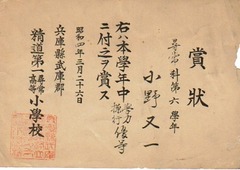 賞状
尋常科第六學年
小野又一
右ハ本學年中學力操行優等
ニ付之ヲ賞ス
昭和四年三月二十六日
兵庫縣武庫郡
精道第一尋常高等小學校